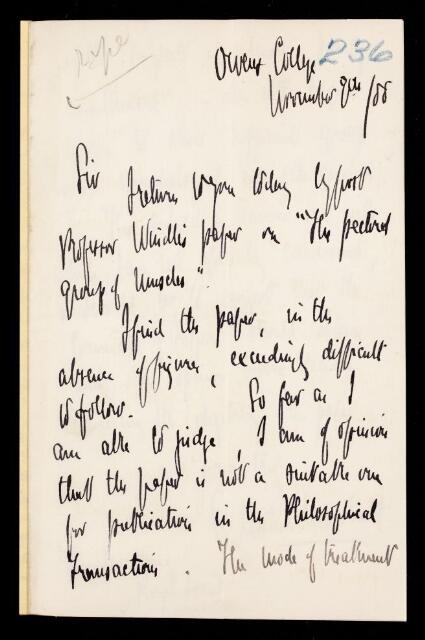 Owens College 236
November 9th /88
Sir
I return to you today by post
Professor Windle's paper on "The pectoral
group of Muscles".
I find the paper, in the
absence of figures, exceedingly difficult
to follow. So far as I
am able to judge, I am of opinion
that the paper is not a suitable one
for publication in the Philosophical
Transactions. The mode of treatment